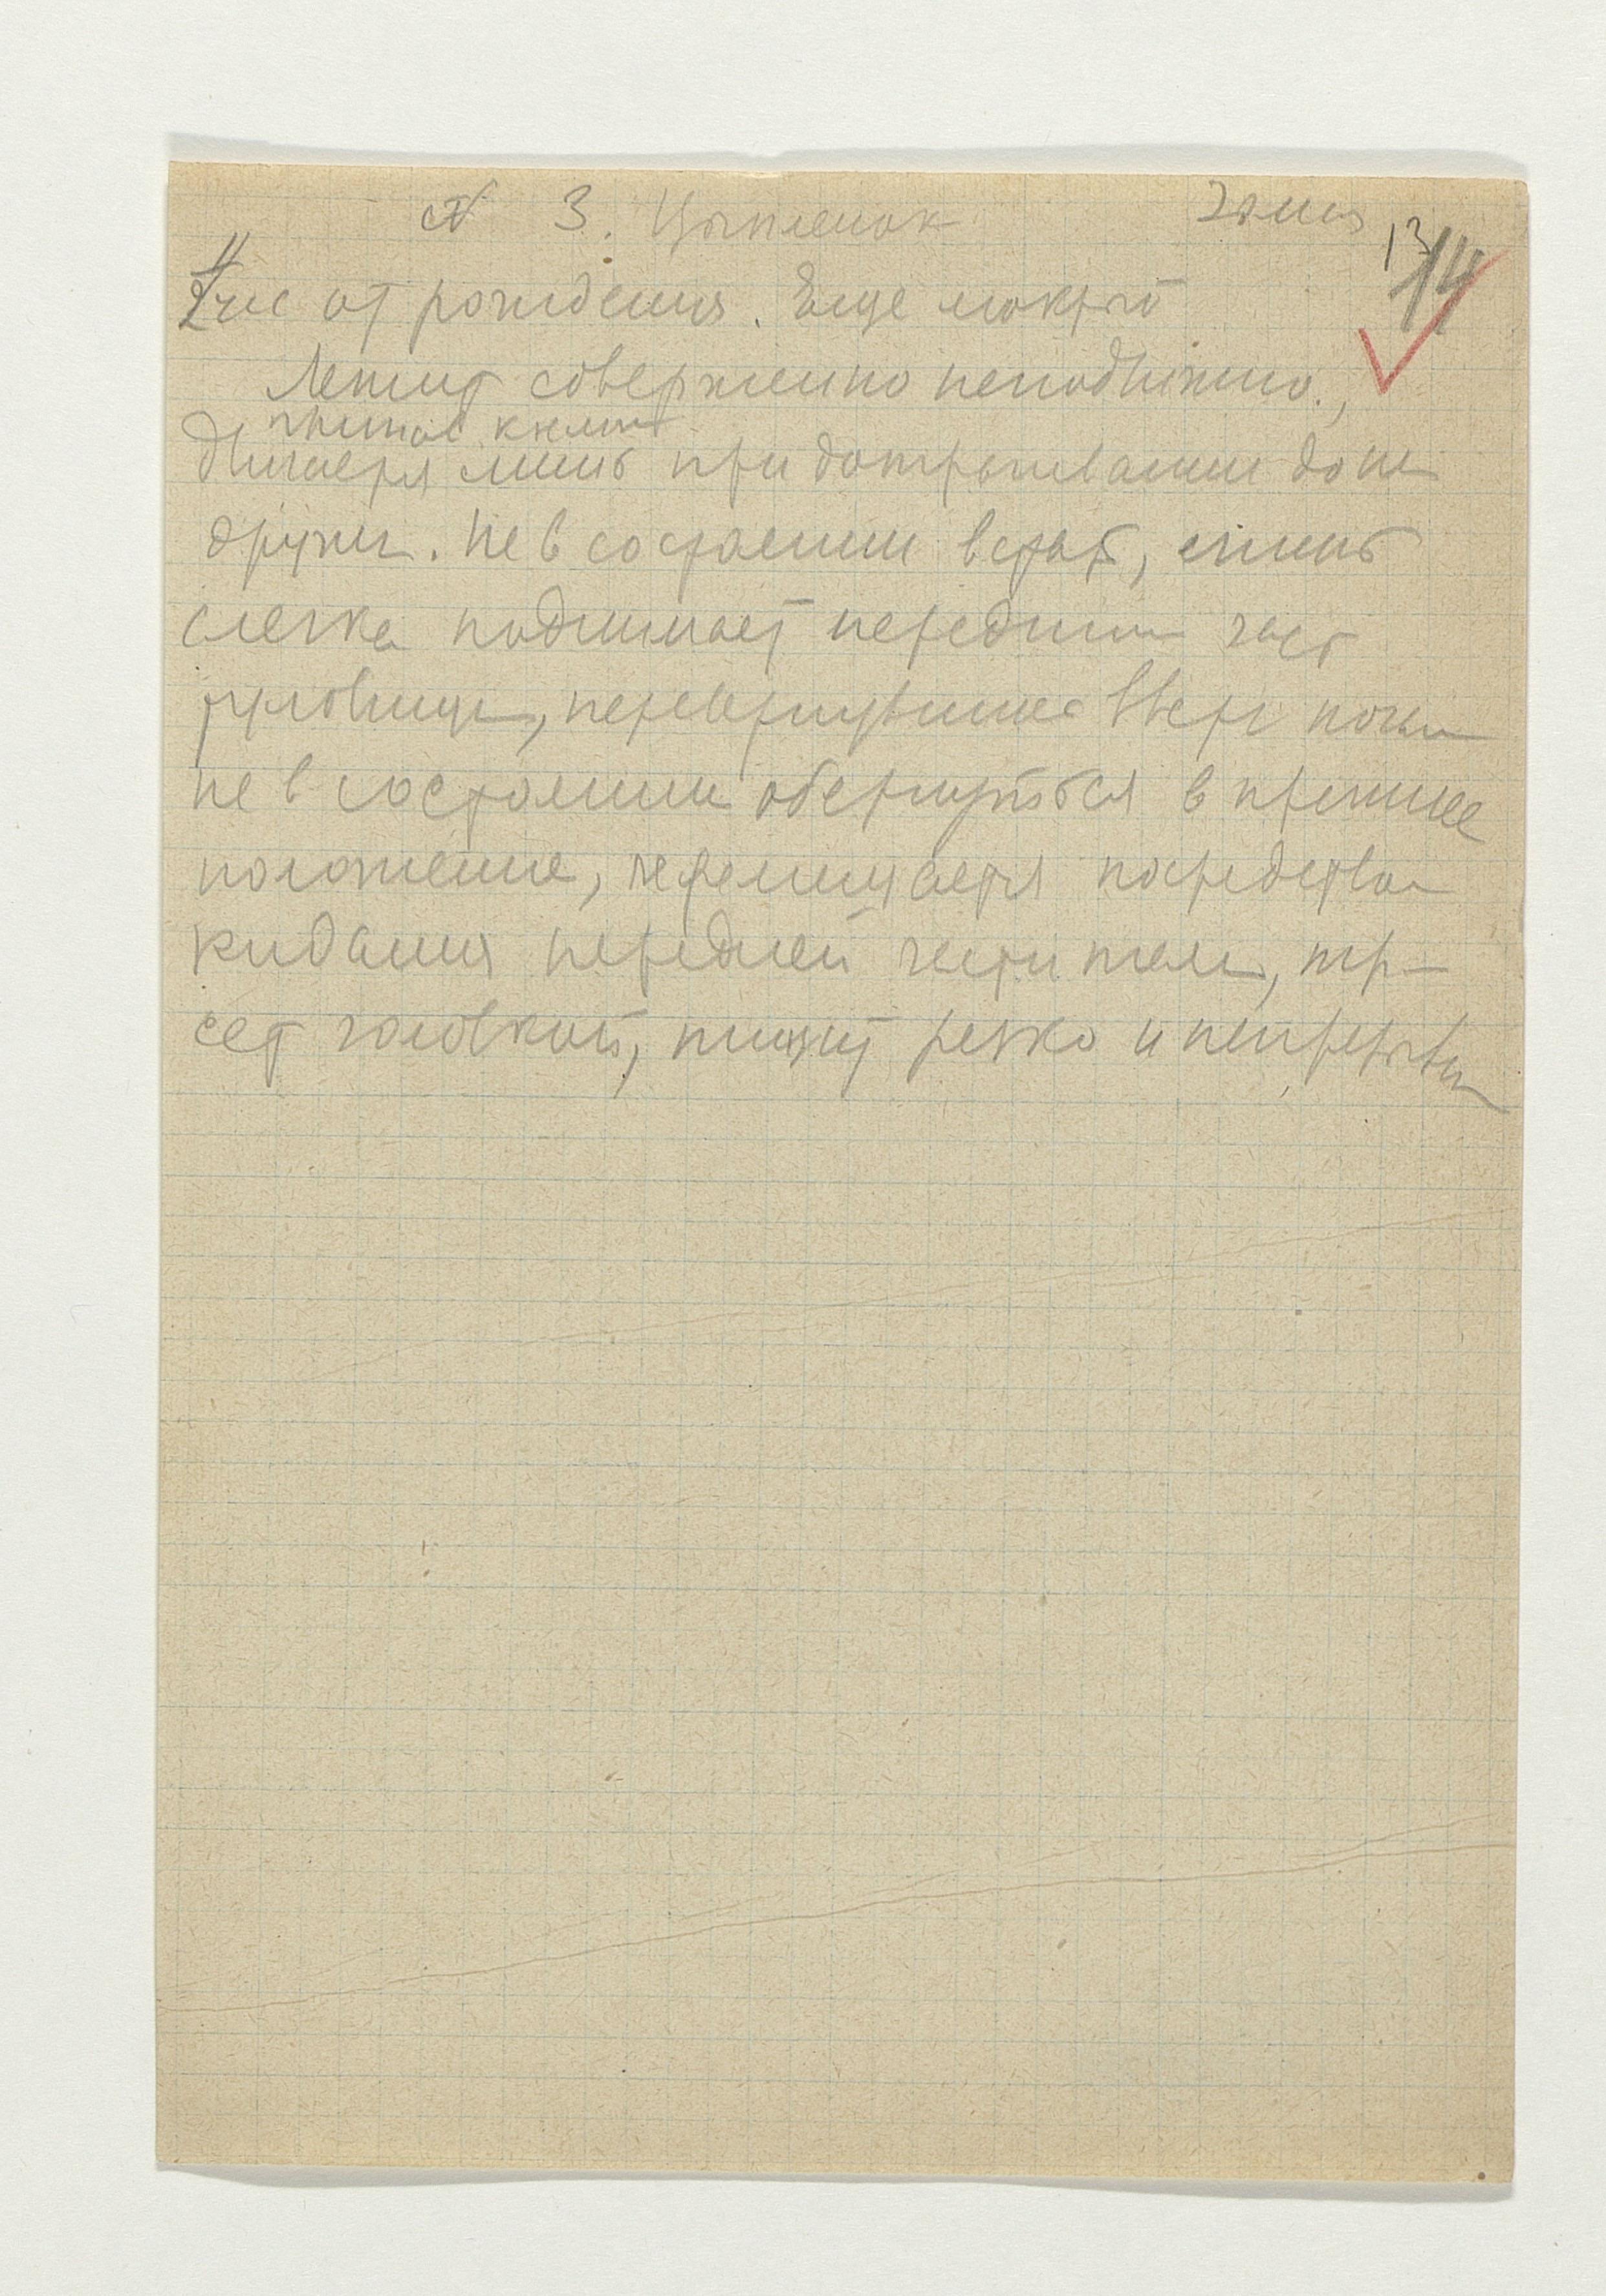 N 3. Цыпленок
13 14
час от рождения. Еще мокрый
Лежит совершенно неподвижно.,
двигается лишь при дотрагивании до не
других. Не в состоянии встать, лишь
слегка поднимает переднюю часть
туловища, перевернувшись вверх ногами
не в состоянии обернуться в прежнее
положение, перемещается посредством
кидания передней части тела, тр-
сет головкой, пищит резко и непрерывно